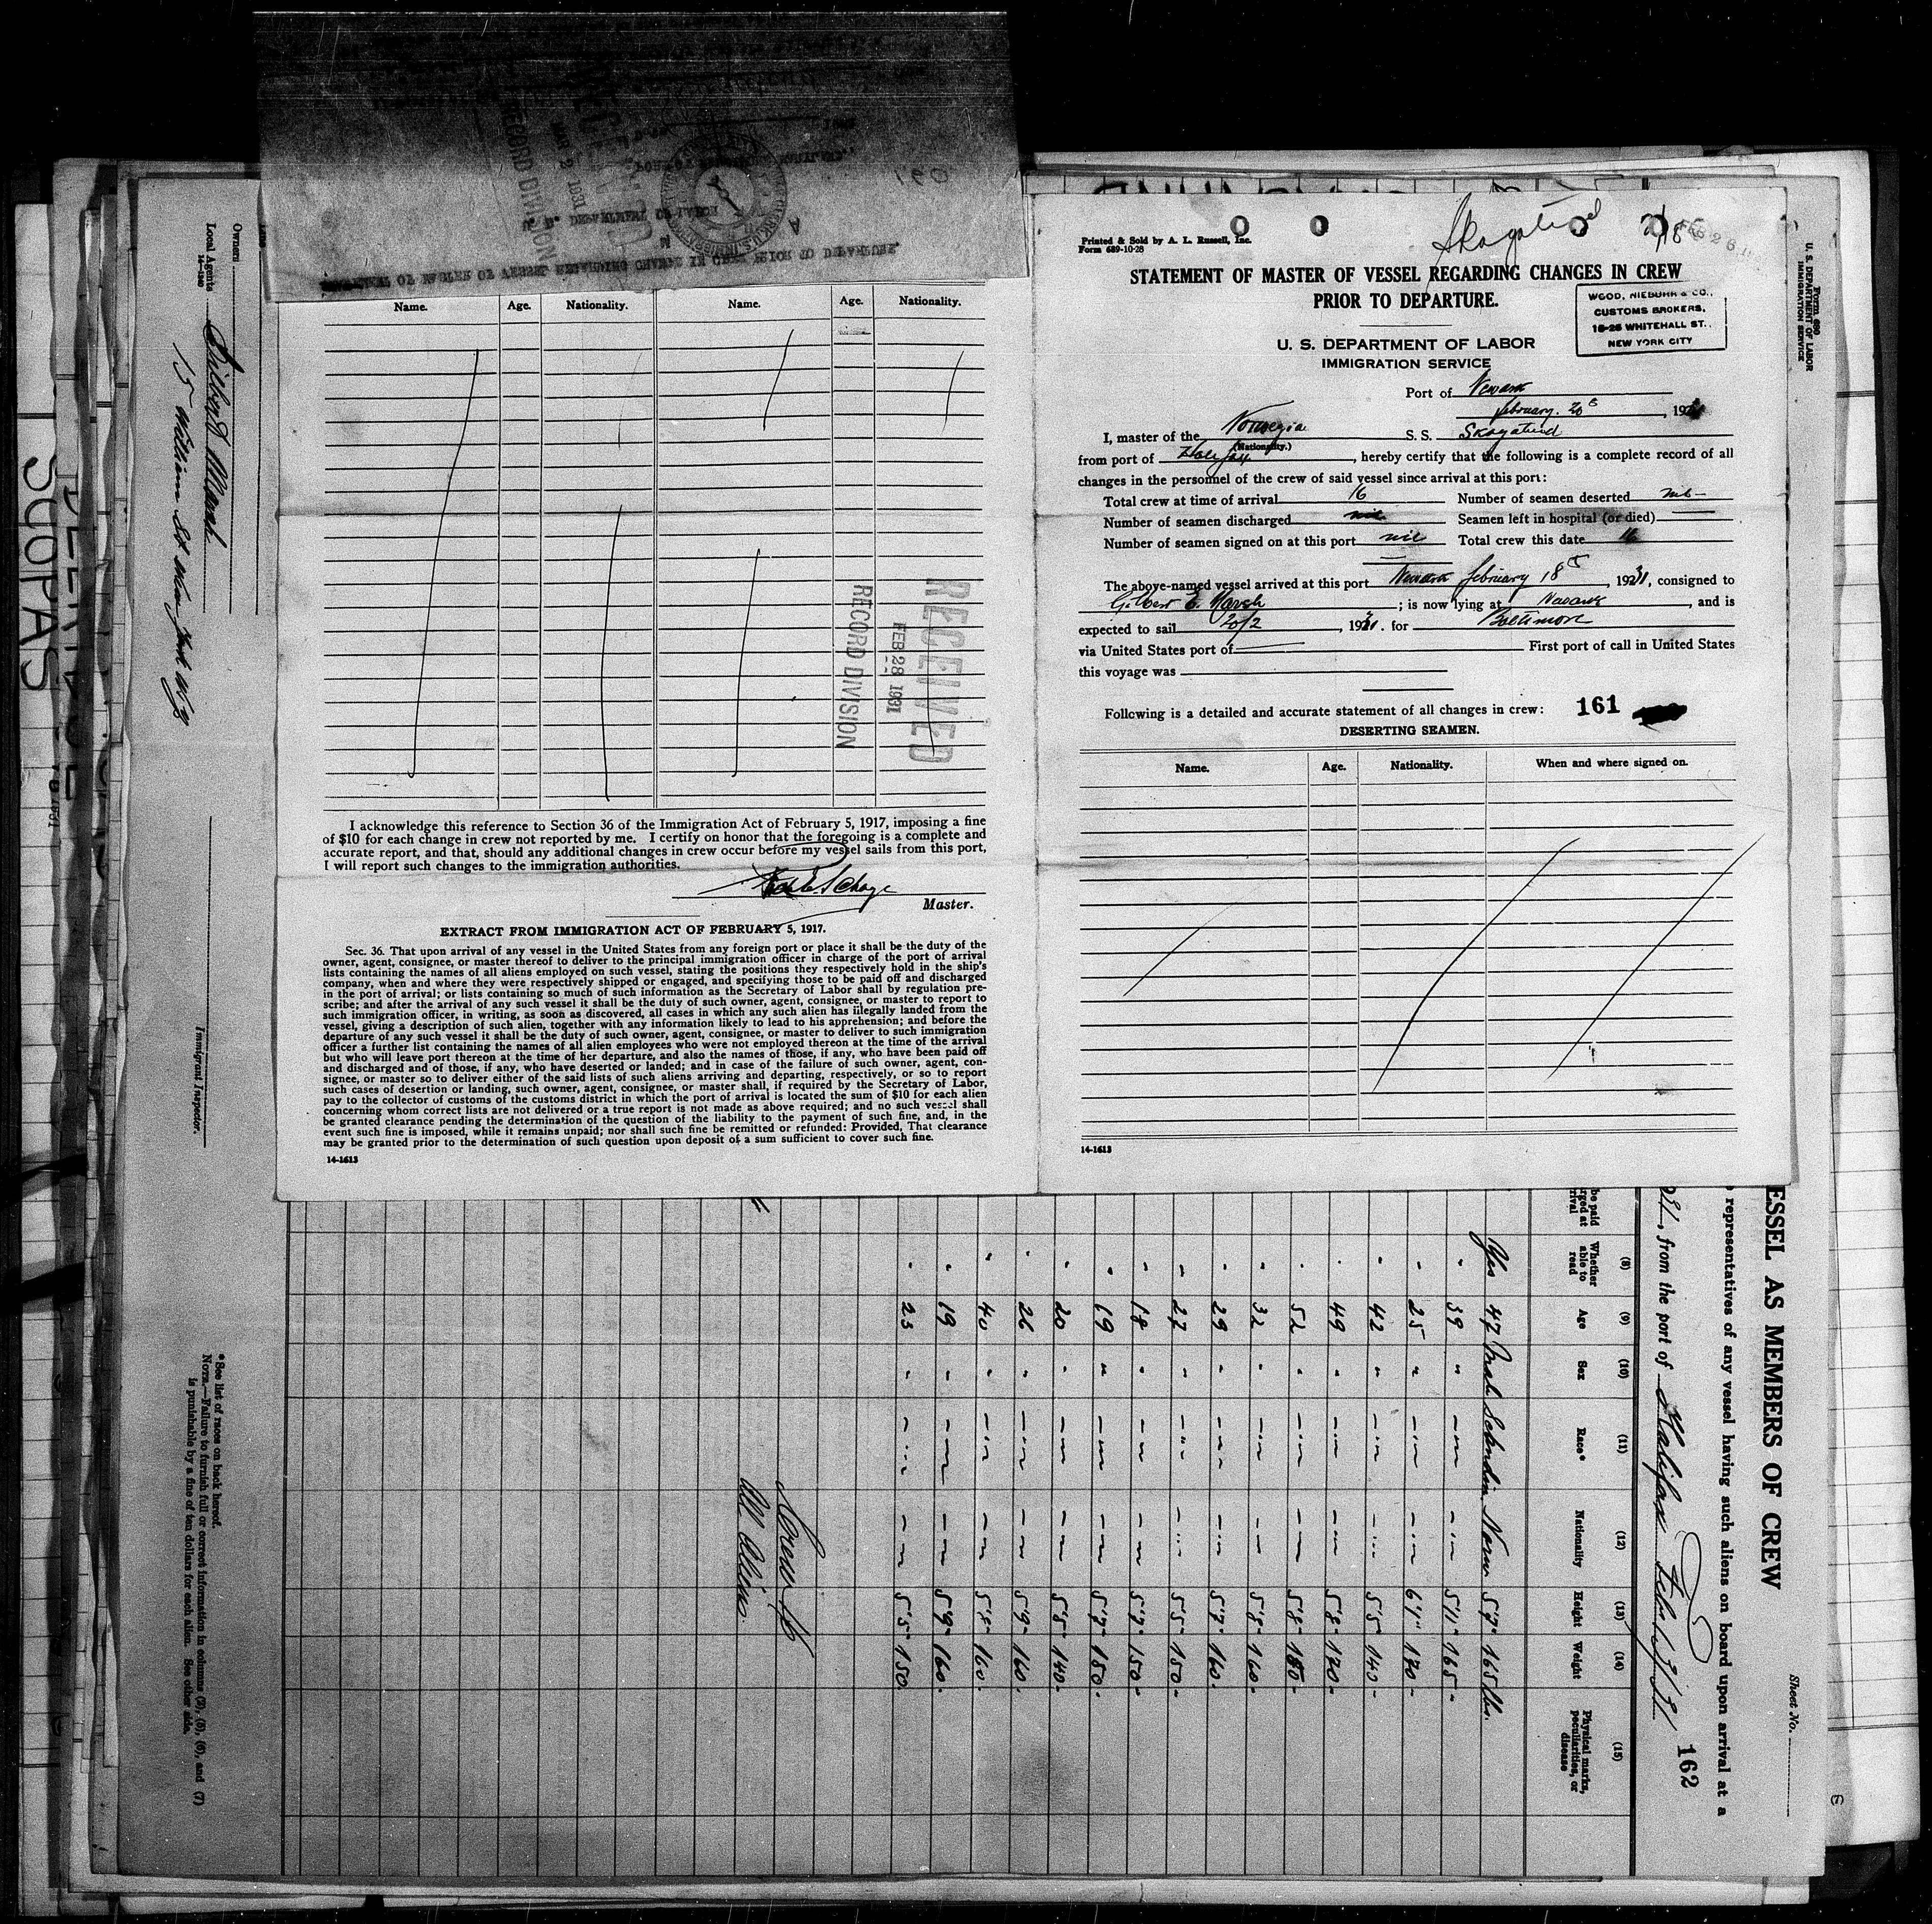 Skogstad
2/18
Printed & Sold by A. L. Russell, Inc.
Form 689-10-28
STATEMENT OF MASTER OF VESSEL REGARDING CHANGES IN CREW
PRIOR TO DEPARTURE.
WOOD, NIEBUHR & CO.,
CUSTOMS BROKERS,
15-25 WHITEHALL ST.,
NEW YORK CITY
U. S. DEPARTMENT OF LABOR
IMMIGRATION SERVICE
Port of Newark
february. 20, 1931
I, master of the Norwegia S. S. Skogstad
(Nationality.)
from port of Halifax, hereby certify that the following is a complete record of all
changes in the personnel of the crew of said vessel since arrival at this port:
Total crew at time of arrival 16 Number of seamen deserted nil
Number of seamen discharged nil Seamen left in hospital (or died)
Number of seamen signed on at this port nil Total crew this date 16
The above-named vessel arrived at this port Newark february 18, 1931, consigned to
Gilbert E. Marsh; is now lying at Newark, and is
expected to sail 20/2, 1931. for Baltimore
via United States port of First port of call in United States
this voyage was
Following is a detailed and accurate statement of all changes in crew: 161
DESERTING SEAMEN.
Name. Age. Nationality. When and where signed on.
14-1613
RECEIVED
MAR 2 1931
RECORD DIVISION
Name. Age. Nationality. Name. Age. Nationality.
RECEIVED
FEB 28 1931
RECORD DIVISION
I acknowledge this reference to Section 36 of the Immigration Act of February 5, 1917, imposing a fine
of $10 for each change in crew not reported by me. I certify on honor that the foregoing is a complete and
accurate report, and that, should any additional changes in crew occur before my vessel sails from this port,
I will report such changes to the immigration authorities.
Master.
EXTRACT FROM IMMIGRATION ACT OF FEBRUARY 5, 1917.
Sec. 36. That upon arrival of any vessel in the United States from any foreign port or place it shall be the duty of the
owner, agent, consignee, or master thereof to deliver to the principal immigration officer in charge of the port of arrival
lists containing the names of all aliens employed on such vessel, stating the positions they respectively hold in the ship's
company, when and where they were respectively shipped or engaged, and specifying those to be paid off and discharged
in the port of arrival; or lists containing so much of such information as the Secretary of Labor shall by regulation pre-
scribe; and after the arrival of any such vessel it shall be the duty of such owner, agent, consignee, or master to report to
such immigration officer, in writing, as soon as discovered, all cases in which any such alien has illegally landed from the
vessel, giving a description of such alien, together with any information likely to lead to his apprehension; and before the
departure of any such vessel it shall be the duty of such owner, agent, consignee, or master to deliver to such immigration
officer a further list containing the names of all alien employees who were not employed thereon at the time of the arrival
but who will leave port thereon at the time of her departure, and also the names of those, if any, who have been paid off
and discharged and of those, if any, who have deserted or landed; and in case of the failure of such owner, agent, con-
signee, or master so to deliver either of the said lists of such aliens arriving and departing, respectively, or so to report
such cases of desertion or landing, such owner, agent, consignee, or master shall, if required by the Secretary of Labor,
pay to the collector of customs of the customs district in which the port of arrival is located the sum of $10 for each alien
concerning whom correct lists are not delivered or a true report is not made as above required; and no such vessel shall
be granted clearance pending the determination of the question of the liability to the payment of such fine, and, in the
event such fine is imposed, while it remains unpaid; nor shall such fine be remitted or refunded: Provided, That clearance
may be granted prior to the determination of such question upon deposit of a sum sufficient to cover such fine.
14-1613
Form 680
U. S. DEPARTMENT OF LABOR
IMMIGRATION SERVICE
Sheet No.
ESSEL AS MEMBERS OF CREW
representatives of any vessel having such aliens on board upon arrival at a
162
, from the port of Halifax
(8) (9) (10) (11) (12) (13) (14) (15)
Whether able to read Age Sex Race* Nationality Height Weight Physical marks, peculiarities, or disease
Yes 47 Male Scandin. Norw 5'7" 165 lbs.
" 39 " 5'11" 165-
" 25 " 6'1" 170-
" 42 " 5'5" 140-
" 49 " 5'8" 170-
" 52 " 5'8" 180-
" 32 " 5'8" 160-
" 29 " 5'7" 160-
" 27 " 5'5" 150-
" 18 " 5'7" 150-
" 19 " 5'7" 150-
" 20 " 5'5" 140-
" 26 " 5'9" 160.
" 40 " 5'8" 160.
" 19 " 5'9" 160.
" 23 " 5'5" 150
Crew 16
All Aliens.
Owners
Local Agents Gilbert Marsh
14-1240
15 William St New York City
Immigrant Inspector.
*See list of races on back hereof.
NOTE.—Failure to furnish full or correct information in columns (3), (5), (6), and (7)
is punishable by a fine of ten dollars for each alien. See other side.
SCOPAS